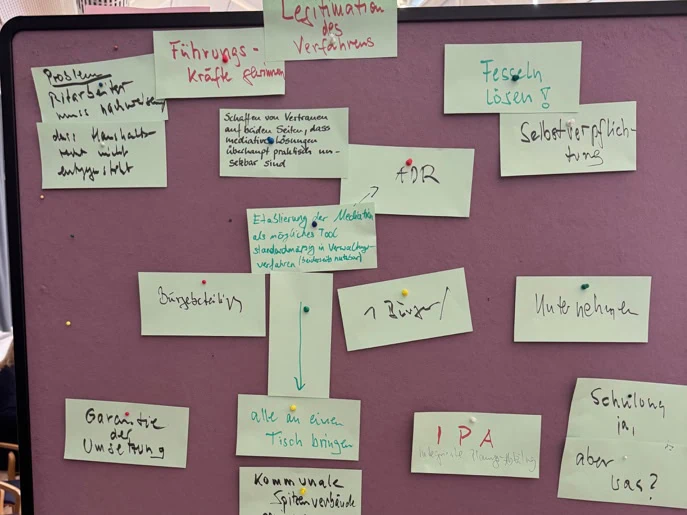 Legitimation
des
Verfahrens
Führungs-
Kräfte gewinnen
Problem
Mitarbeiter
muss nachweisen,
dass Haushalts-
recht nicht
entgegensteht
Schaffen von Vertrauen
auf beiden Seiten, dass
mediative Lösungen
überhaupt praktisch um-
setzbar sind
Fesseln
lösen!
Selbstverpflich-
tung
ADR
Etablierung der Mediation
als mögliches Tool
standardmäßig in Verwaltungs-
verfahren (beiderseits nutzbar)
Bürgerbeteiligung
1 Bürger/
Unternehmen
Garantie
der
Umsetzung
alle an einen
Tisch bringen
IPA
Schulung
ja,
aber
was?
Kommunale
Spitzenverbände